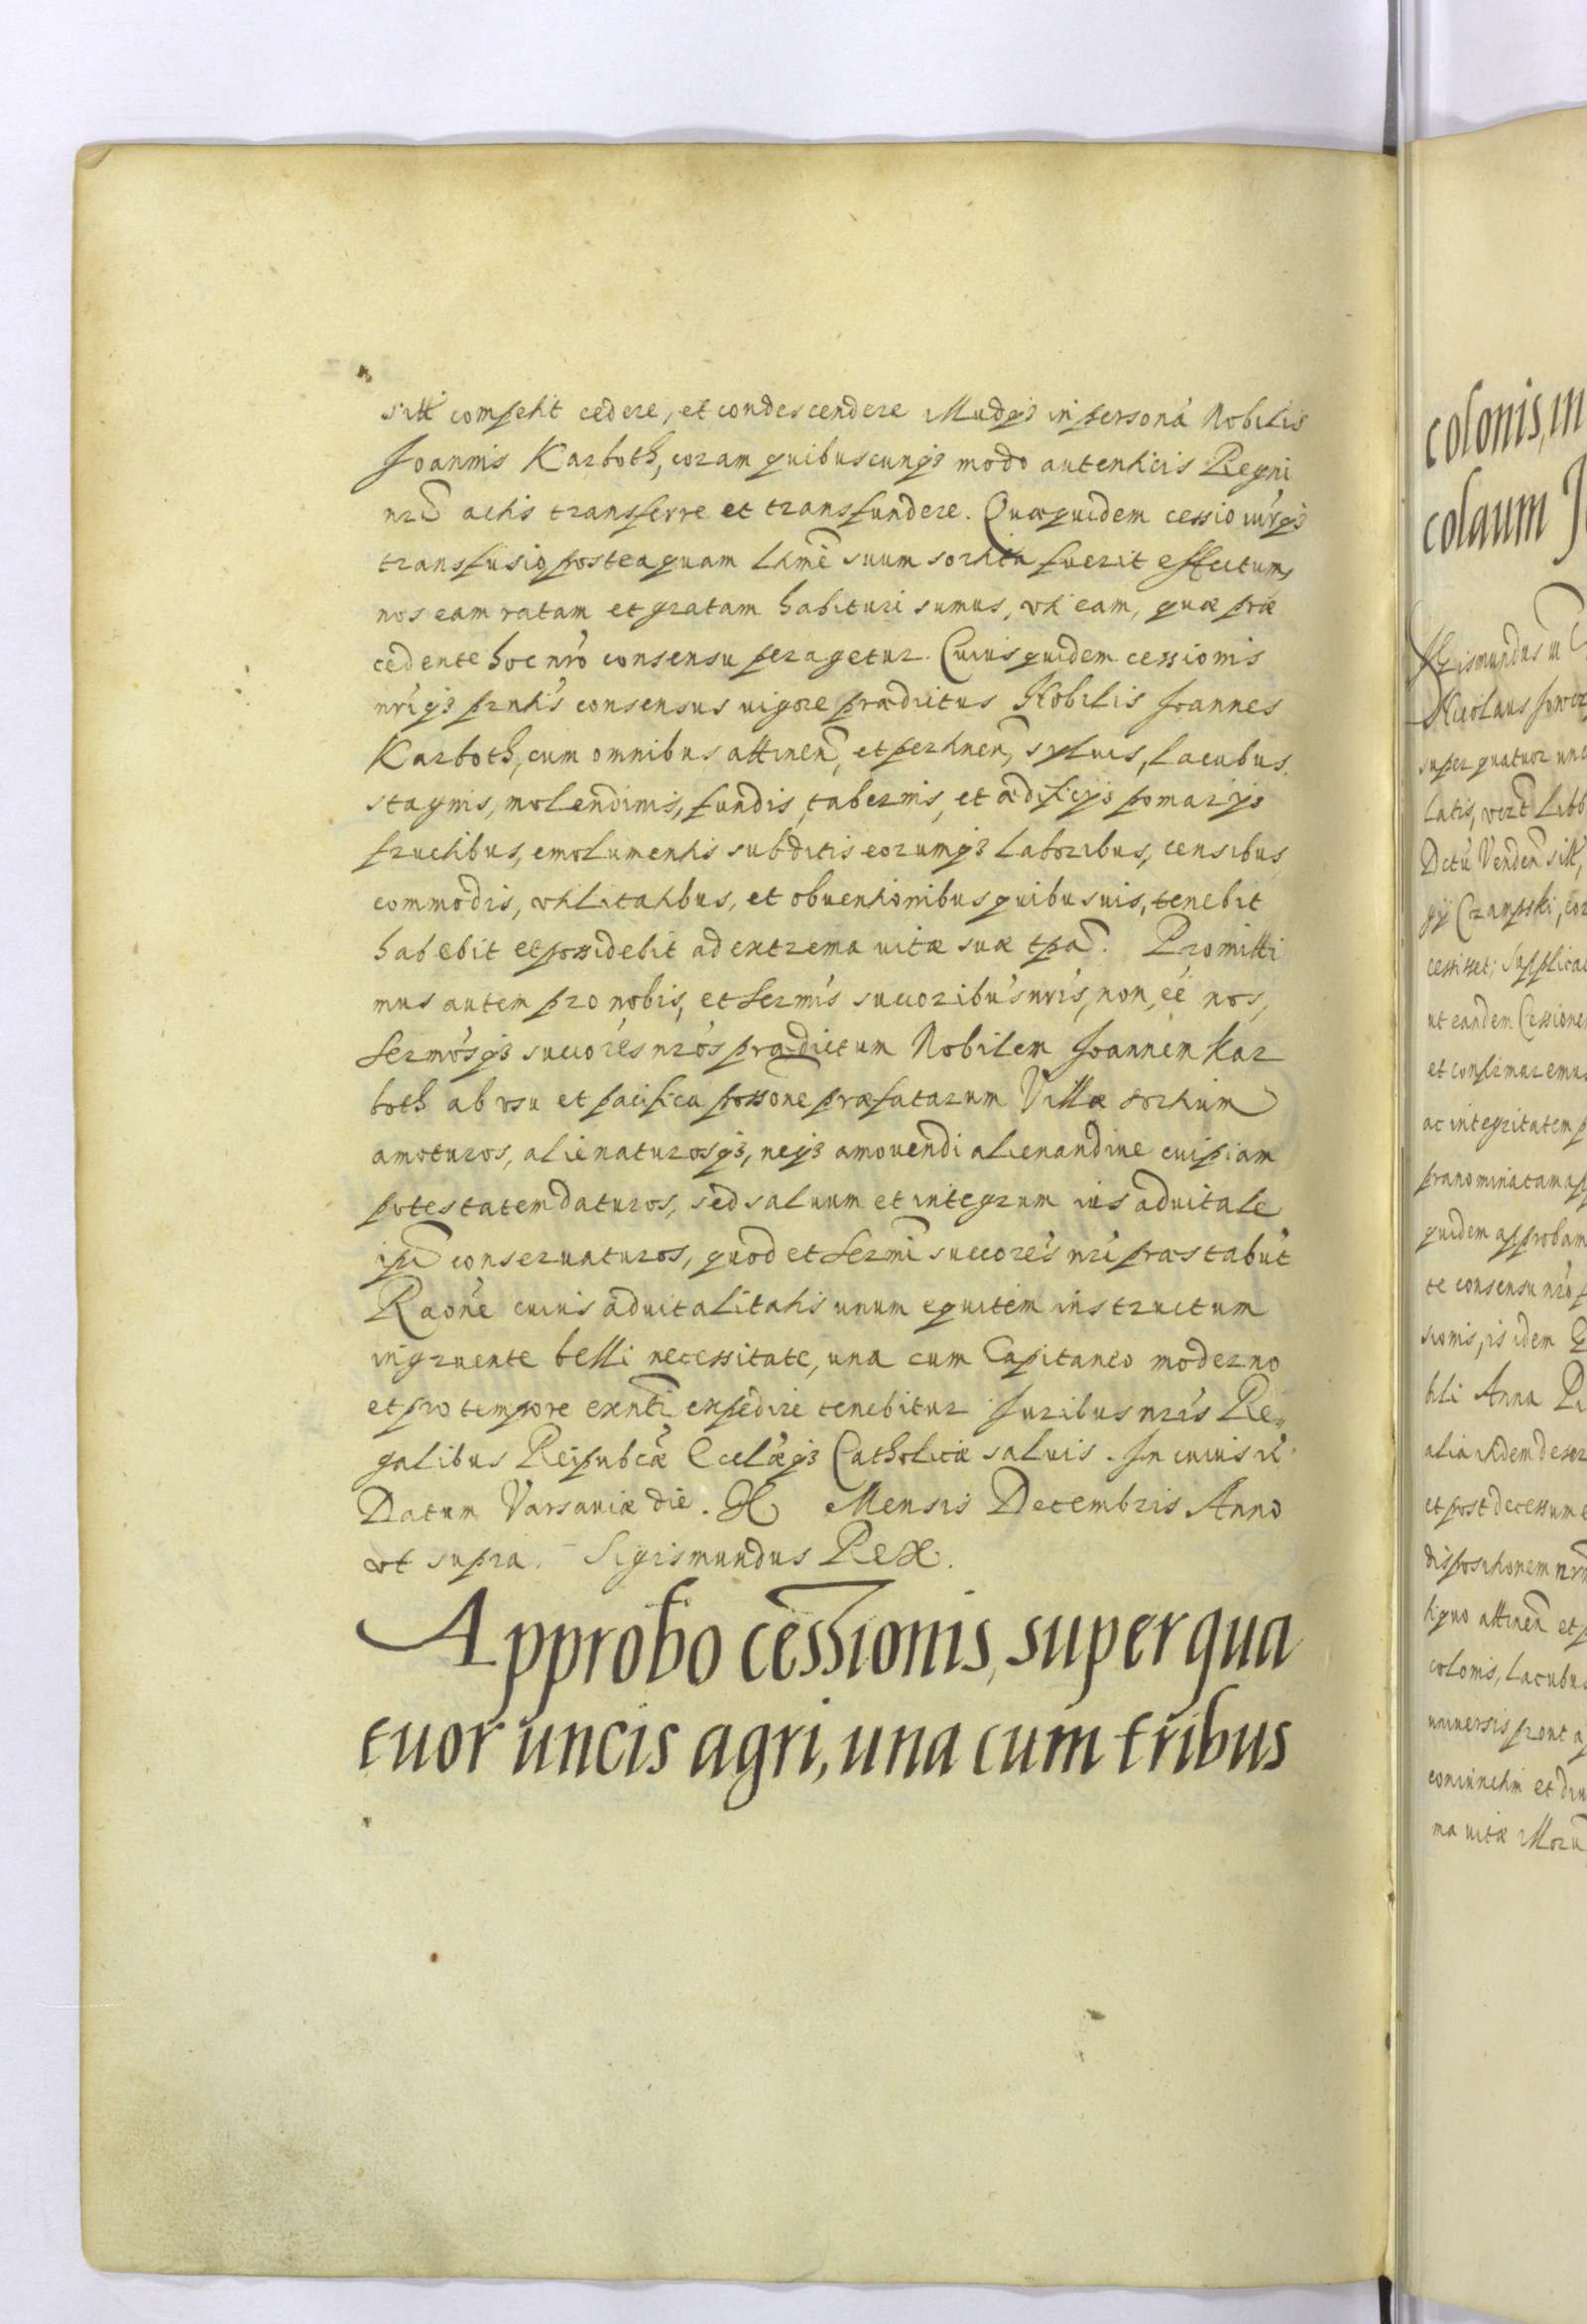 sitt competit cedere, et condescendere illudq3 in persona Nobilis
Joannis Karboth, coram quibuscunq3 modo autenticis Regni
nri actis transferre et transfundere. Quæquidem cessio iurisq3
transfusio posteaquam ltime suum sortita fuerit effectum,
nos eam ratam et gratam habituri sumus, vti eam, quæ præ
cedente hoc nro consensu peragetur. Cuius quidem cessionis
nriq3 pntis consensus uigore prædictus Nobilis Joannes
Karboth, cum omnibus attinen, et pertinen, syluis, lacubus,
stagnis, molendinis, fundis, tabernis, et ædificijs pomarijs
fructibus, emolumentis subditis eorumq3 laboribus, censibus,
commodis, vtilitatibus, et obuentionibus quibusuis, tenebit
habebit et possidebit ad extrema uitæ suæ tpa. Promitti
mus autem pro nobis, et Sermis succoribus nris, non ee nos,
Sermosq3 succores nros prædictum Nobilem Joannem Kar
both ab vsu et pacifica possone præfatarum Villæ sortium
amoturos, alienaturosq3, neq3 amouendi alienandiue cuipiam
potestatem daturos, sed saluum et integrum ius aduitale
ipi conseruaturos, quod et Sermi succores nri præstabut
Raone cuius aduitalitatis unum equitem instructum
ingruente belli necessitate, una cum Capitaneo moderno
et pro tempore exnti expedire tenebitur Juribus nris Re„
galibus Reipubcæ Ecclæq3 Catholicæ saluis. In cuius rei
Datum Varsauiæ die. X Mensis Decembris Anno
vt supra. Sigismundus Rex.
Approbo cessionis, super qua
tuor uncis agri, una cum tribus
colonis, in
colaum J
Sigismundus
Nicolaus
super quatuor unc
latis, vczt Libb
Dctu Venden sitt,
gij Czanpski, cor
cessisset; supplicat
ut eandem Cessione
et confirmaremus
ac integritatem p
prænominatam ap
quidem approbam
te consensu nro p
sionis, is idem
bli Anna
alia ididem deser
et post decessum
dispositionem nram
tiquo attinen et p
colonis, lacubus
uniuersis pront
coniunctim et diu
ma uitæ